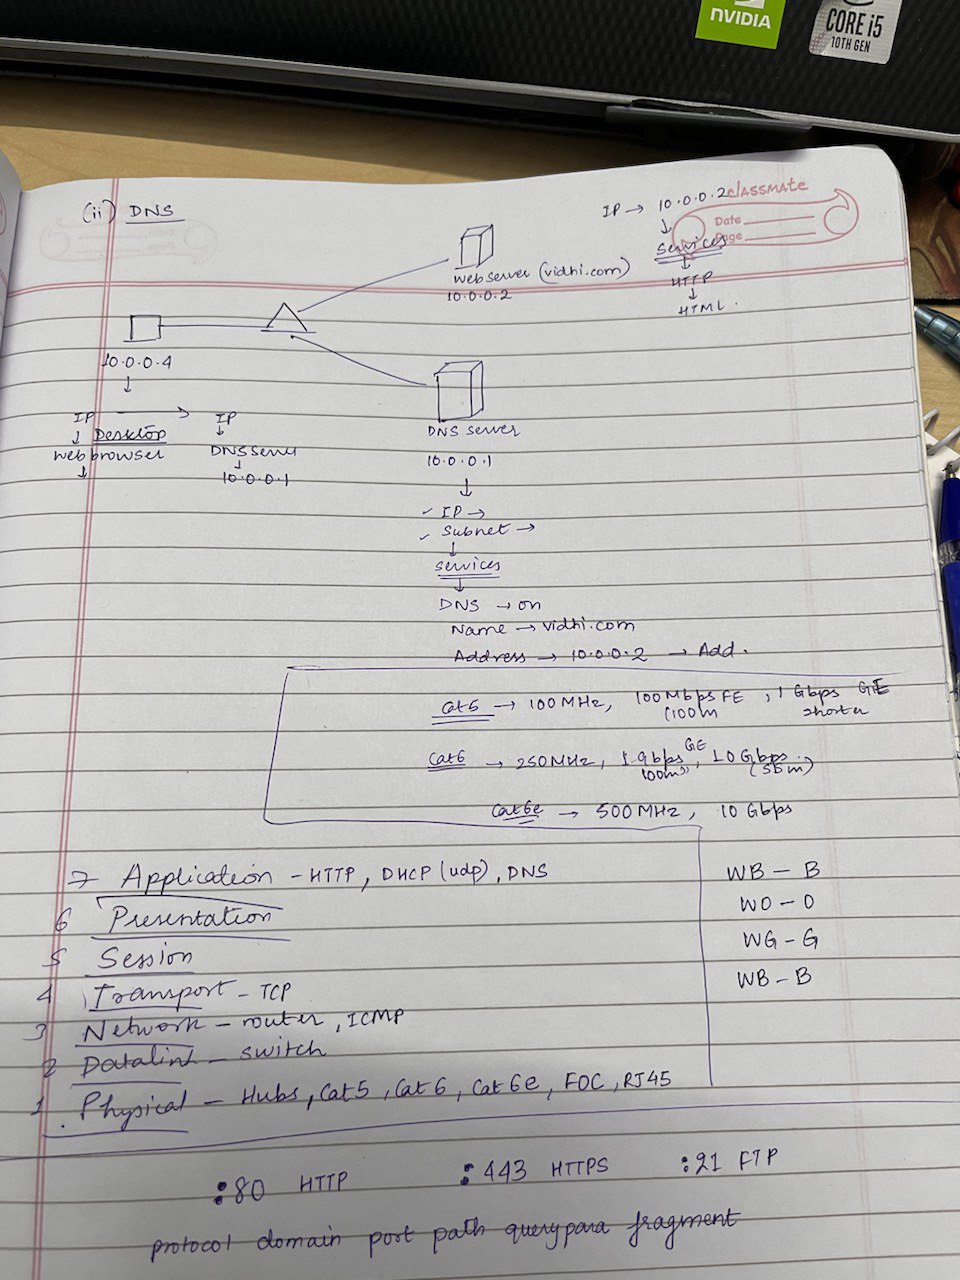 NVIDIA
CORE i5
10TH GEN
classmate
Date
Page
(ii) DNS
IP → 10.0.0.2
↓
Services
↓
HTTP
↓
HTML.
Webserver (vidhi.com)
10.0.0.2
10.0.0.4
↓
IP → IP
↓ Desktop ↓
Web browser DNS Serv
↓ ↓
10.0.0.1
DNS Server
10.0.0.1
↓
✓ IP →
✓ Subnet →
↓
Services
↓
DNS → on
Name → vidhi.com
Address → 10.0.0.2 → Add.
Cat5 → 100 MHz, 100 Mbps FE, 1 Gbps GE
(100m shorter
Cat6 → 250MHz, 1 gbps GE, 10 Gbps
100m) (55m)
Cat6e → 500 MHz, 10 Gbps
7 Application - HTTP, DHCP (udp), DNS
6 Presentation
5 Session
4 Transport - TCP
3 Network - router, ICMP
2 Datalink - switch
1 Physical - Hubs, Cat5, Cat6, Cat6e, FOC, RJ45
WB - B
WO - O
WG - G
WB - B
:80 HTTP :443 HTTPS :21 FTP
protocol domain port path querypara fragment